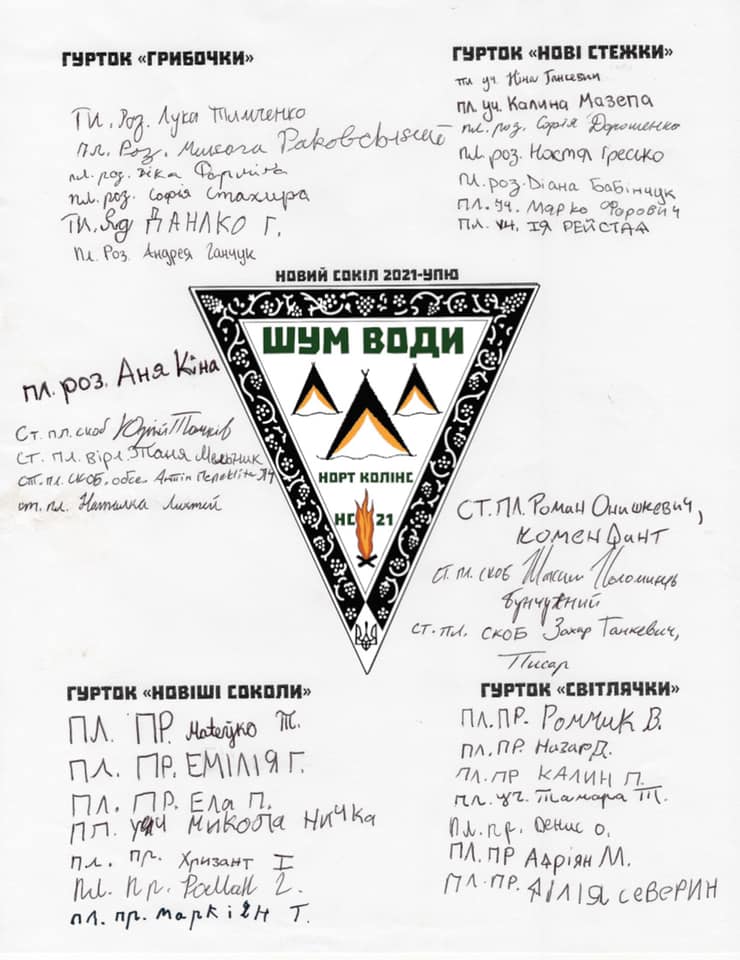 ГУРТОК «ГРИБОЧКИ»
Пл. Роз. Лука Тимченко
пл. Роз. Микола Раковський
пл. роз. Віка
пл. роз. Софія Стахира
Пл. ДАНЛКО Г.
Пл. Роз. Андрея Ганчук
ГУРТОК «НОВІ СТЕЖКИ»
пл уч. Ніна Ганкевич
пл. уч. Калина Мазепа
пл. роз. Софія Дорошенко
пл. роз. Ностя Гресько
пл. роз. Діана Бабінчук
пл. уч. Марко Форович
пл. уч. ІЯ РЕЙСТАД
НОВИЙ СОКІЛ 2021-УПЮ
ШУМ ВОДИ
НОРТ КОЛІНС
НС 21
пл. роз. Аня Кіна
Ст. пл. скоб Юрій
Ст. пл. вірл. Таня Мельник
ст. пл. скоб. обсе. Антін
ст. пл. Наталка
ст. пл. Роман Онишкевич,
комендант
ст. пл. скоб Максим
бунчужний
ст. пл. скоб Захар Ганкевич,
Писар
ГУРТОК «НОВІШІ СОКОЛИ»
ПЛ. ПР. Матейко Т.
ПЛ. ПР. ЕМІЛІЯ Г.
ПЛ. ПР. Ела П.
ПЛ. уч Микола Ничка
пл. пр. Хризант І
Пл. Пр. Роман Г.
пл. пр. маркіян Т.
ГУРТОК «СВІТЛЯЧКИ»
ПЛ. ПР. Ромчик В.
пл. ПР. Назар Д.
ПЛ. ПР КАЛИН П.
пл. уч. Тамара Т.
Пл. пр. Денис О.
ПЛ. ПР Адріян М.
ПЛ. ПР. ЛІЛІЯ СЕВЕРИН